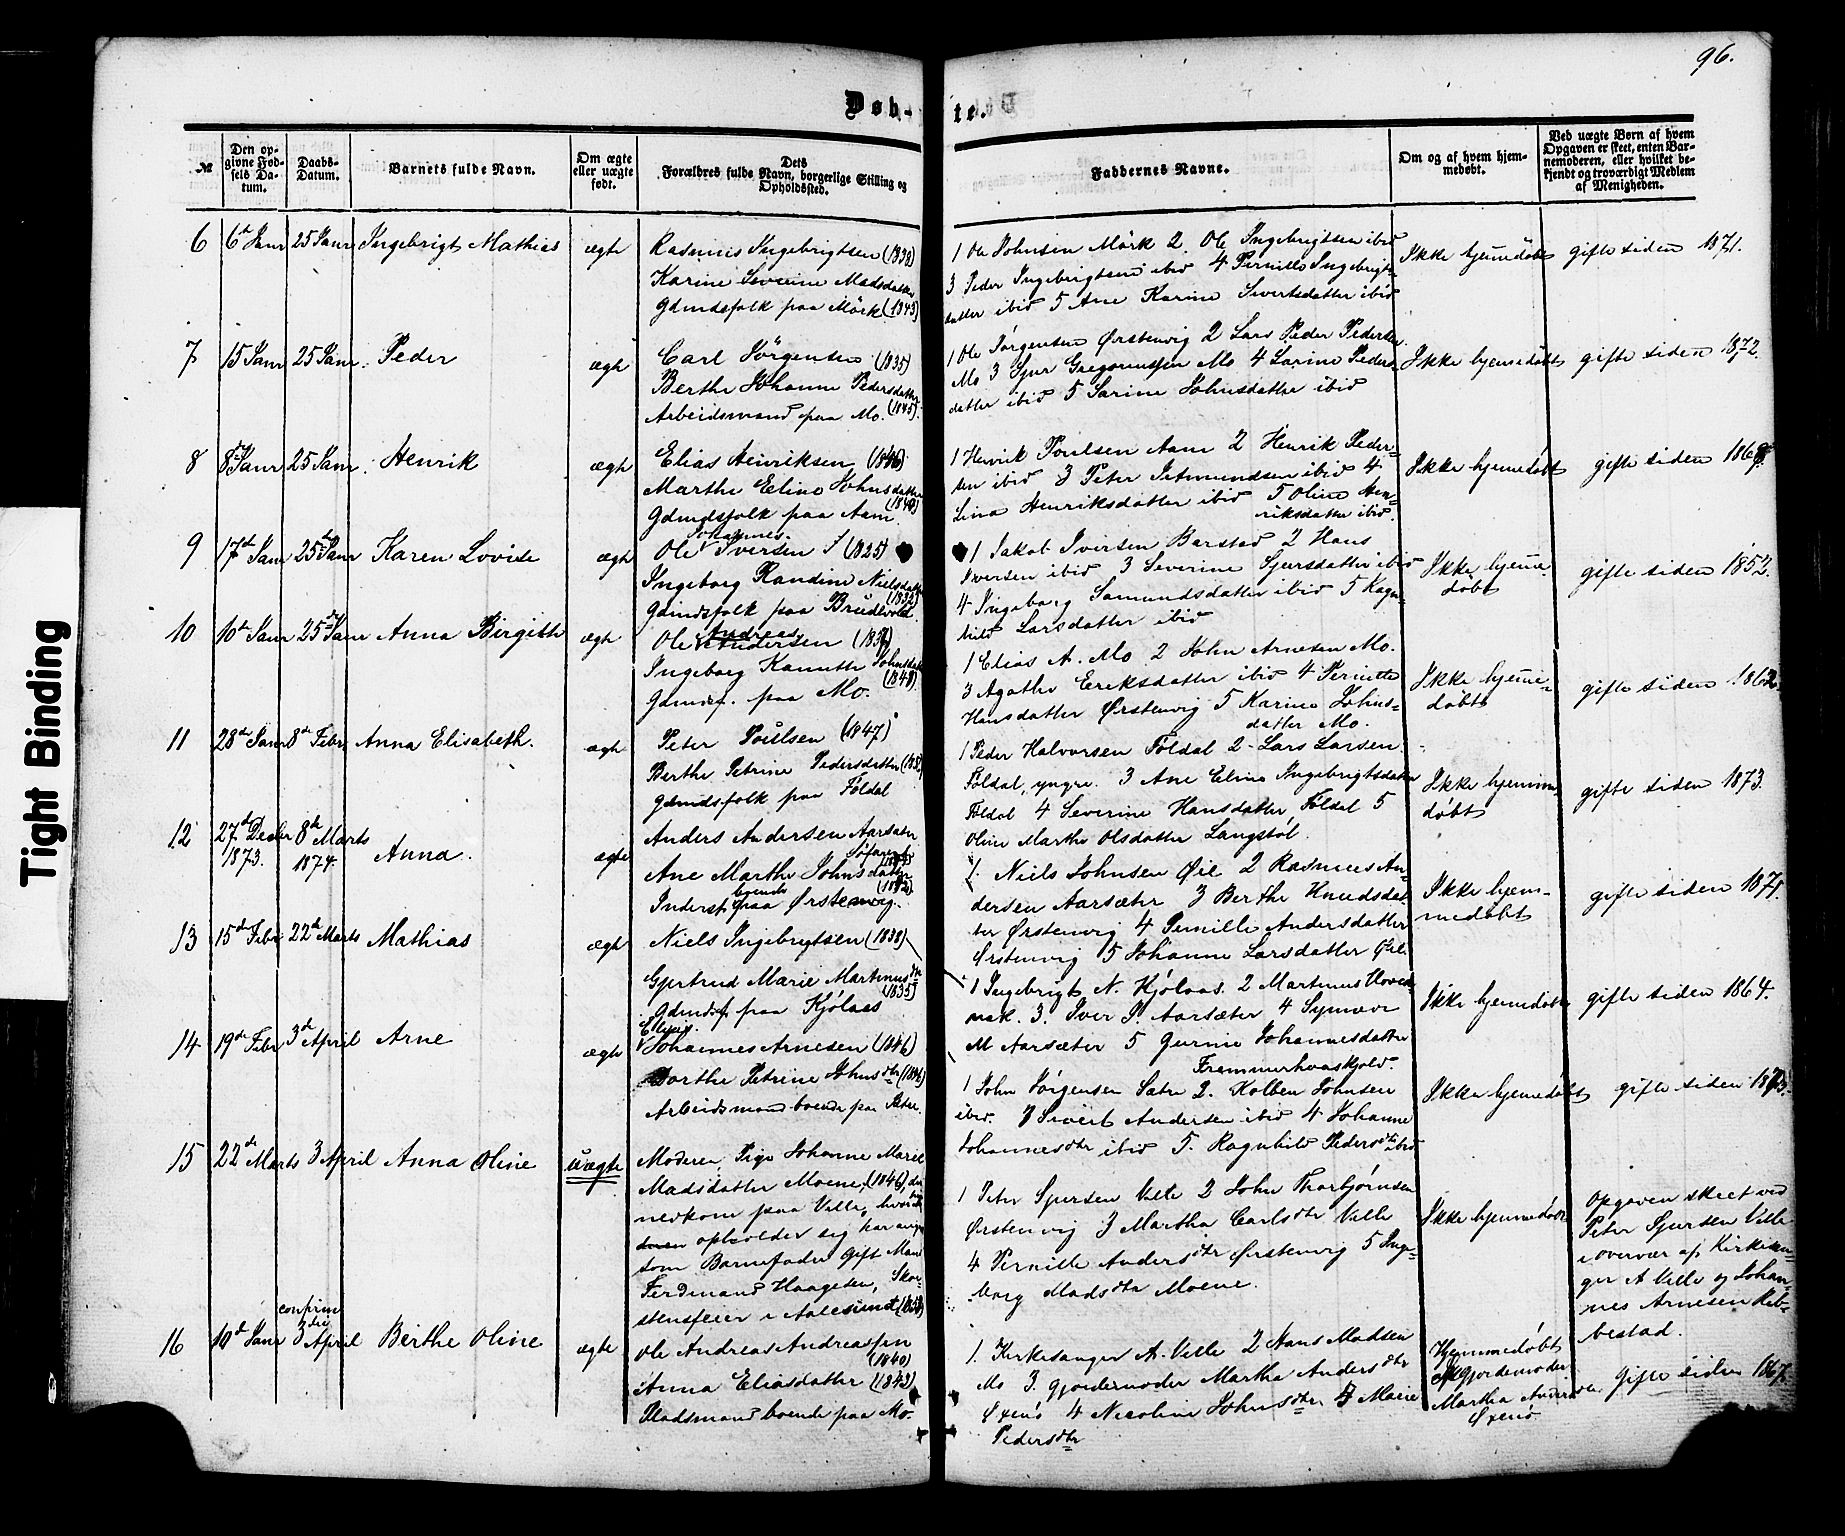 96.
Døb- te.
Tight Binding
№
Den op-
givne Fød-
sels Da-
tum.
Daabs-
Datum.
Barnets fulde Navn.
Om ægte
eller uægte
født.
Dets
Forældres fulde Navn, borgerlige Stilling og
Opholdssted.
Faddernes Navne.
Om og af hvem hjem-
medøbt.
Ved uægte Børn af hvem
Opgaven er skeet, enten Bar-
nemoderen, eller hvilket be-
kjendt og troværdigt Medlem
af Menigheden.
6 6te Janr 25 Janr Ingebrigt Mathias ægte
Rasmus Ingebrigtsen (1838)
Karine Severine Madsdatter
Gdmdsfolk paa Mörk (1843)
1 Ole Johnsen Mörk 2 Ole Ingebrigtsen ibid
3 Peder Ingebrigtsen ibid 4 Pernille Ingebrigts-
datter ibid 5 Ane Karine Sivertsdatter ibid
Ikke hjemedöbt
gifte siden 1871.
7 15 Janr 25 Janr. Peder ægte
Carl Jörgensen (1835)
Berthe Johanne Pedersdatter
Arbeidsmand paa Mo. (1845)
1 Ole Jørgensen Ørstenvig 2 Lars Peder Pedersen
Mo 3 Sjur Gregoriussen Mo 4 Larine Peders-
datter ibid 5 Sarine Johnsdatter ibid
Ikke hjemedöbt
gifte siden 1872.
8 8de Janr 25 Janr. Henrik ægte
Elias Henriksen (1846)
Marthe Eline Johnsdatter
Gdmdsfolk paa Aam.
1 Henrik Poulsen Aam 2 Henrik Peder-
sen ibid 3 Peter ibid 4
Lina Henriksdatter ibid 5 Oline Hen-
riksdatter ibid.
Ikke hjemedöbt
gifte siden
9 17de Janr 25de Janr Karen Lovise ægte
Johannes
Ole Iversen (1825)
Ingeborg Randine Nielsdatter
Gdmdsfolk paa Brudevold
1 Jakob Iversen Barstad 2 Hans
Iversen ibid 3 Severine Sjursdatter ibid
4 Ingeborg Samundsdatter ibid 5 Ragn-
hild Larsdatter ibid
Ikke hjeme-
döbt
gifte siden 1852.
10 10de Janr 25de Janr Anna Birgithe ægte
Andreas
Ole Andersen
Ingeborg Kanutte Johnsdatter
Gdmdsf. paa Mo.
1 Elias A. Mo 2 John Arnesen Mo.
3 Agathe Eriksdatter ibid 4 Pernille
Hansdatter Ørstenvig 5 Karine Johns-
datter Mo.
Ikke hjeme-
döbt
gifte siden
11 28de Janr 8de Febr. Anna Elisabeth. ægte
Peter Poulsen (1847)
Berthe Petrine Pedersdatter
Gdmdsfolk paa Földal
1 Peder Halvorsen Földal 2 Lars Larsen
Földal, yngre. 3 Ane Eline Ingebrigtsdatter
Földal 4 Severine Hansdatter Földal 5
Oline Marthe Olsdatter Langstöl.
Ikke hjemme
döbt
gifte siden 1873.
12 27de Decbr 1873. 8de Marts 1874. Anna. ægte
Anders Andersen Aarsæter
Ane Marthe Johnsdatter
Inderst boende paa Ørstenvig.
1. Niels Johnsen Øie 2 Rasmus An-
dersen Aarsæter 3 Berthe Knudsdat
ter Ørstenvig 4 Pernille Andersdatter
Ørstenvig 5 Johanne Larsdatter Øie.
Ikke hjem-
medöbt
gifte siden 1871.
13 15de Febr 22de Marts Mathias ægte
Niels Ingebrigtsen (1838)
Gjertrud Marie Martinusdtr
Gdmdsf. paa Kjölaas (1835)
1 Ingebrigt N. Kjölaas. 2 Martinus Hoved
nak. 3. Iver I. Aarsæter 4 Synnøve
M Aarsæter 5 Gurine Johannesdatter
Fremmerhovskjold.
Ikke hjemedöbt
gifte siden 1864.
14 19de Febr 3de April Arne ægte
Johannes Arnesen (1846)
Dorthe Petrine Johnsdtr (1846)
Arbeidsmand boende paa Sæter.
1 John Jørgensen Sætre 2. Kolben Johnsen
ibid. 3 Sivert Andersen ibid 4 Johanne
Johannesdtr ibid 5. Ragnhild Pedersdtr ibid
Ikke hjemedöbt
gifte siden
15 22de Marts 3 April Anna Oline uægte
Moderen, Pige Johanne Marie
Madsdatter Moene, (1846), der
nedkom paa Velle, hvor
opholder sig har angi
som Barnefader Gift Mand
Ferdinand Haagesen, Skor-
stensfeier i Aalesund
1 Peter Sjursen Velle 2 John Thorbjørnsen
Ørstenvig 3 Martha Carlsdtr Velle
4 Pernille Andersdtr Ørstenvig 5 Inge-
borg Madsdtr Moene.
Ikke hjemmedöbt
Opgaven skeet ved
Peter Sjursen Velle
i overvær af Kirkesan-
ger A Velle og Johan-
nes Arnesen Reb-
bestad.
16 10de Janr confirm 3 April Berthe Oline ægte
Ole Andreas Andreassen
(1840)
Anna Eliasdatter (1843)
Pladsmand boende paa Mo.
1. Kirkesanger A. Velle 2 Hans Madsen
Mo 3. Gjordemoder Martha Andersdtr
Øxenö 4 Nicoline Johnsdtr 5 Marie
Pedersdtr
Hjemmedöbt
af Gjordemoder
Martha Andersdtr
Øxenö
Gifte siden 1867